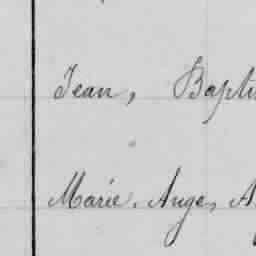 Jean, Bapti
Marie, Ange, A